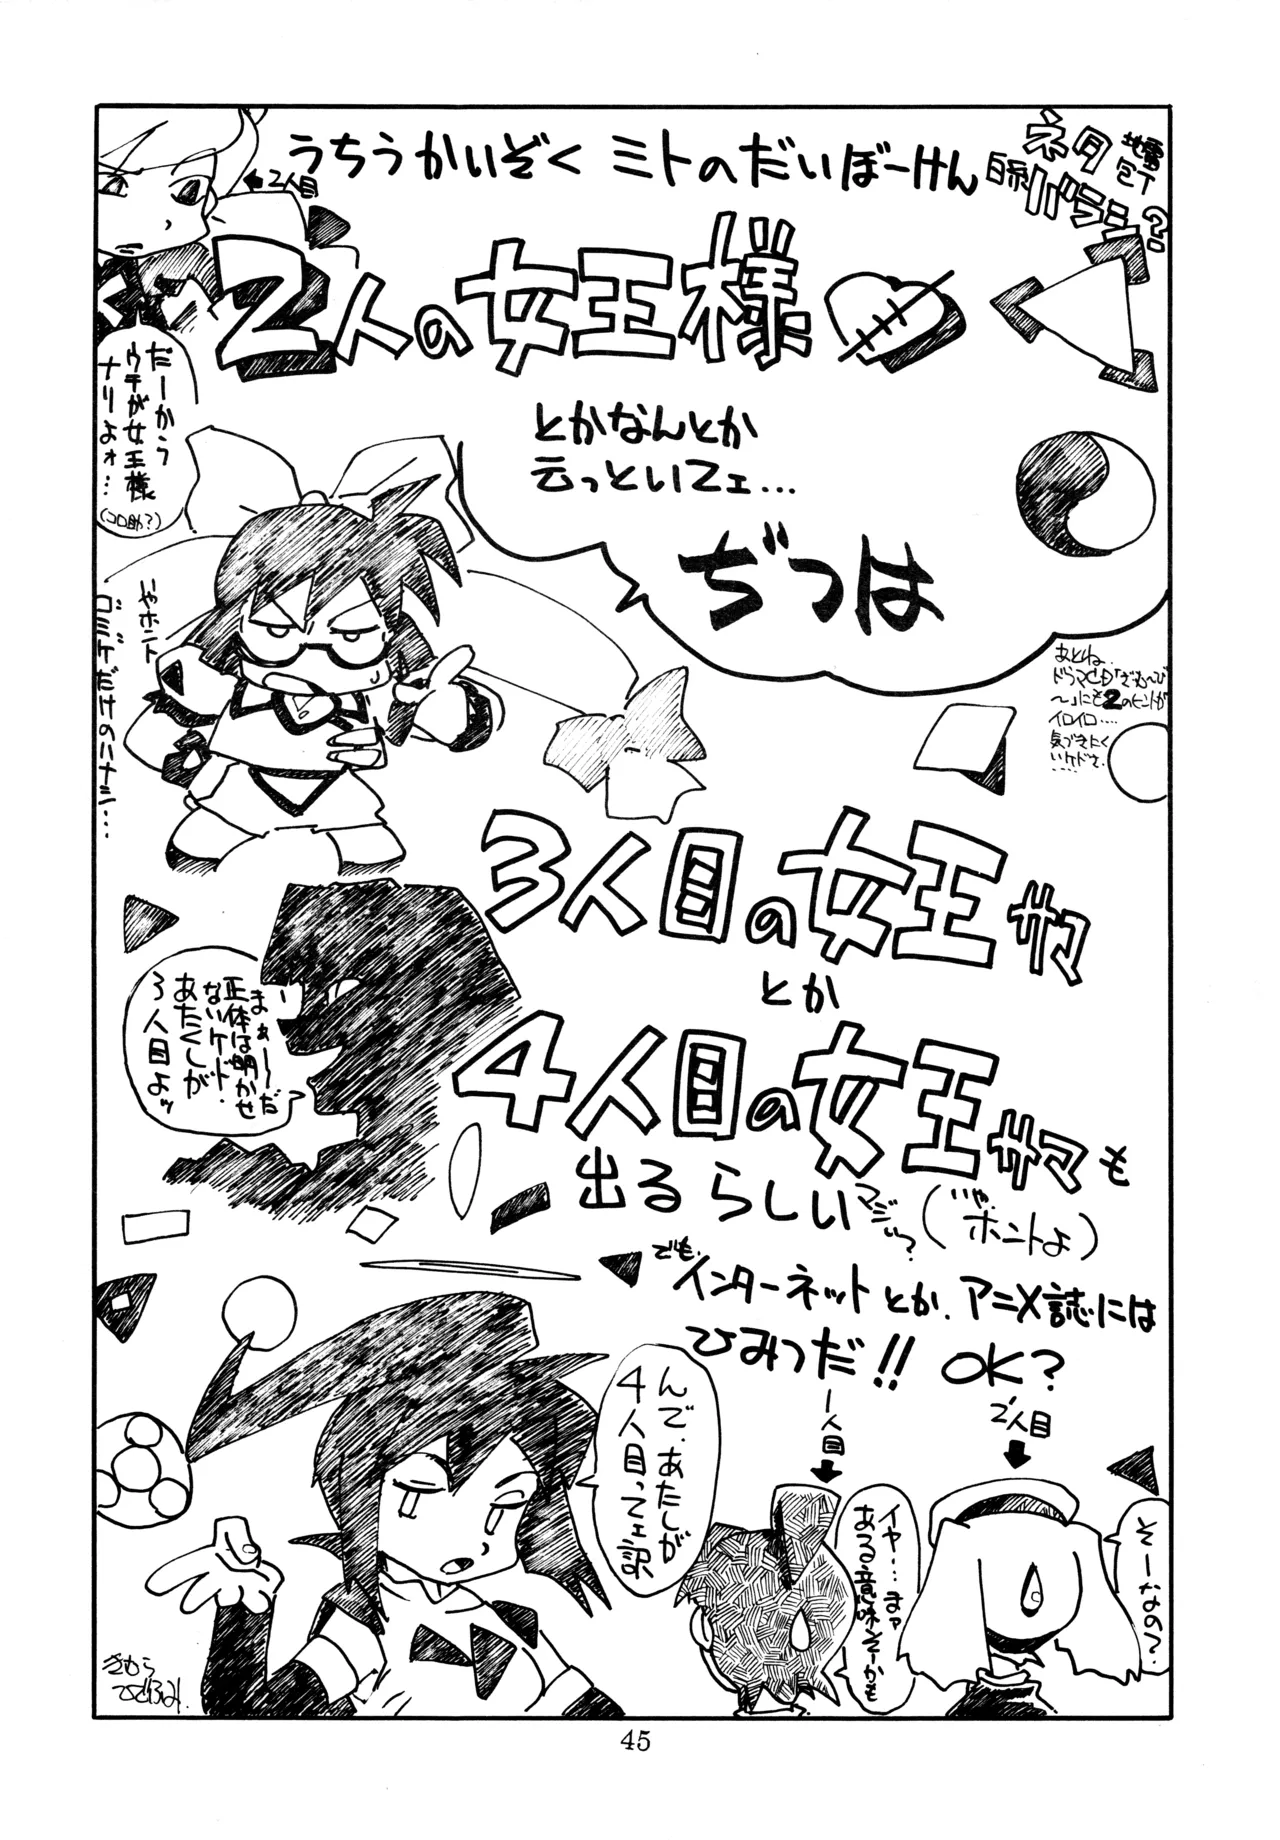 うちうかいぞく ミトのだいぼーけん
ネタ
バラシ?
←2人目
2人の女王様
だーから
ウチが女王様
ナリよォ…
(コロ助?)
とかなんとか
云っといてェ…
ぢつは
いやホント
ゴミケだけのハナシ…
あとね、
ドラマCD「ざむ〜び
〜」にも2のヒントが
イロイロ…
気づきにく
いケドさ、
…
3人目の女王サマ
とか
4人目の女王サマも
出るらしい
マジっ?
(いやホントよ)
まぁ〜だ
正体は明かせ
ないケド、
あたくしが
3人目よッ
でも、インターネットとか、アニメ誌には
ひみつだ!! OK?
んで、あたしが
4人目ってェ訳
1人目
2人目
イヤ…まァ
ある意味そーかも
そーなの?
きむら
ひでふみ.
45